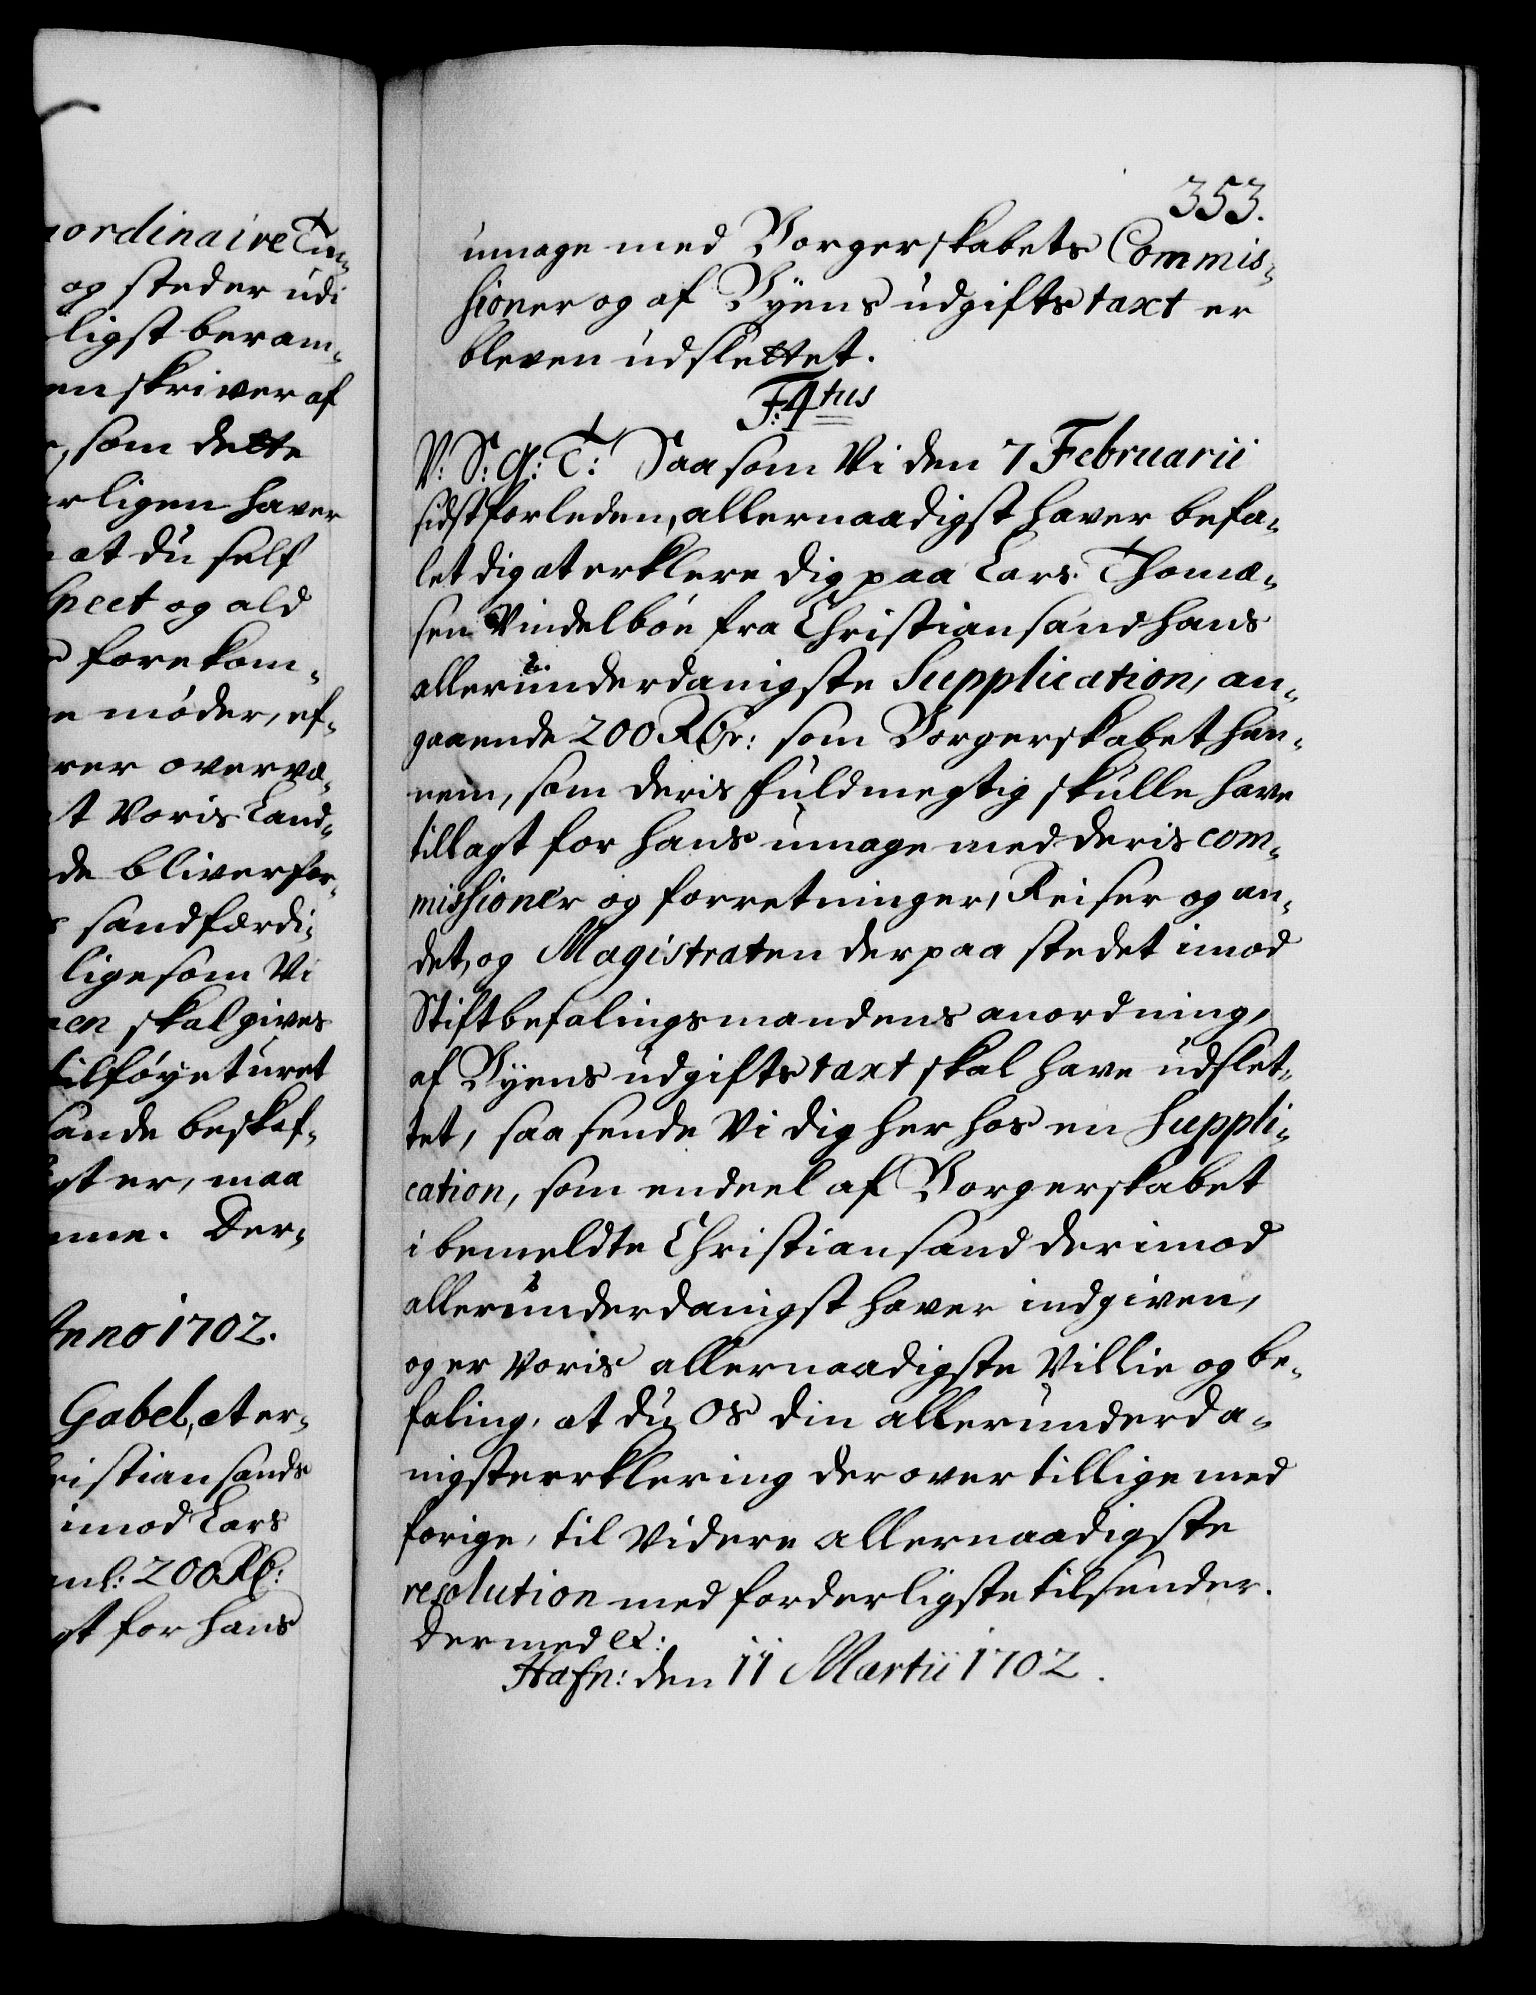 ordinaire Tin-
og steder udi
ligst beram-
en skriver af
som dette
rligen haver
at du self
og ald
forekom-
møder, ef-
rer overvæ-
t Voris Land-
de bliver for-
sandfærdi-
ligesom Vi
en skal gives
tilføyet uret
sande beskaf-
gt er, maa
me. Der-
Anno 1702.
Gabel, at er-
ristiansands
imod Lars
200 Rd:
gt for hans
353.
umage med Borgerskabets Commis-
sioner og af Byens udgifts taxt er
bleven udslettet.
F: 4tus
V: S: G: T: Saasom Vi den 7 Februarii
sidstforleden, allernaadigst haver befa-
let dig at erklere dig paa Lars Thomæ-
sen Vindelbøe fra Christiansand hans
allerunderdanigste Supplication, an-
gaaende 200 Rdr: som Borgerskabet han-
nem, som deris fuldmegtig skulle have
tillagt for hans umage med deris com-
missioner og forretninger, Reiser og an-
det, og Magistraten der paa stedet imod
Stiftbefalingsmandens anordning,
af Byens udgifts taxt skal have udslet-
tet, saa sende Vi dig her hos en Suppli-
cation, som endeel af Borgerskabet
i bemeldte Christiansand derimod
allerunderdanigst haver indgiven,
og er Voris allernaadigste Villie og be-
faling, at du Os din allerunderda-
nigste erklering derover tillige med
forige, til Videre allernaadigste
resolution med forderligste tilsender.
Dermed etc:
Hafn: den 11 Martii 1702.